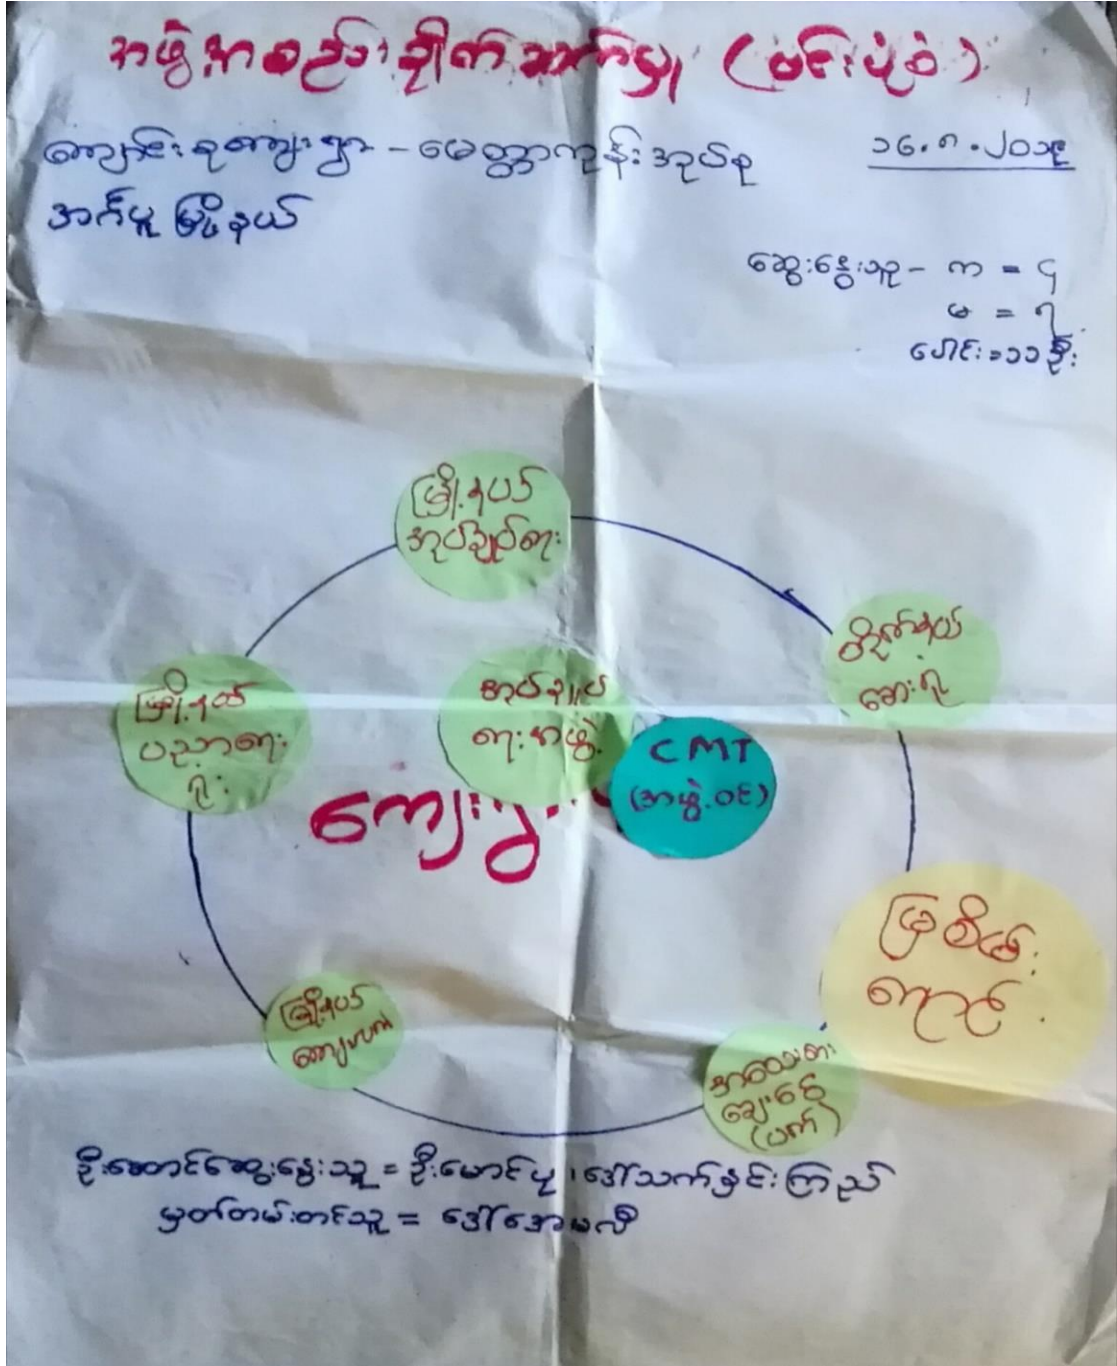 အဖွဲ့အစည်း ချိတ်ဆက်မှု (ဝင်းပုံစံ)
ကျောင်းစုကျေးရွာ - မေတ္တာကုန်းအုပ်စု
၁၆.၈.၂၀၁၉
အင်္ပူမြို့နယ်
ဆွေးနွေးသူ - က = ၄
မ = ၇
ပေါင်း = ၁၁ ဦး
မြို့နယ်
အုပ်ချုပ်ရေး
တိုက်နယ်
ဆေးရုံ
မြို့နယ်
ပညာရေး
ရုံး
အုပ်ချုပ်
ရေးအဖွဲ့
CMT
(အဖွဲ့ဝင်)
ကျေးရွာ
မြစိမ်း
ရောင်
မြို့နယ်
ကျေးလက်
အသေးစား
ချေးငွေ
(ပက်)
ဦးဆောင်ဆွေးနွေးသူ = ဦးမောင်ပု၊ ဒေါ်သက်နှင်းကြည်
မှတ်တမ်းတင်သူ = ဒေါ်အေမလီ